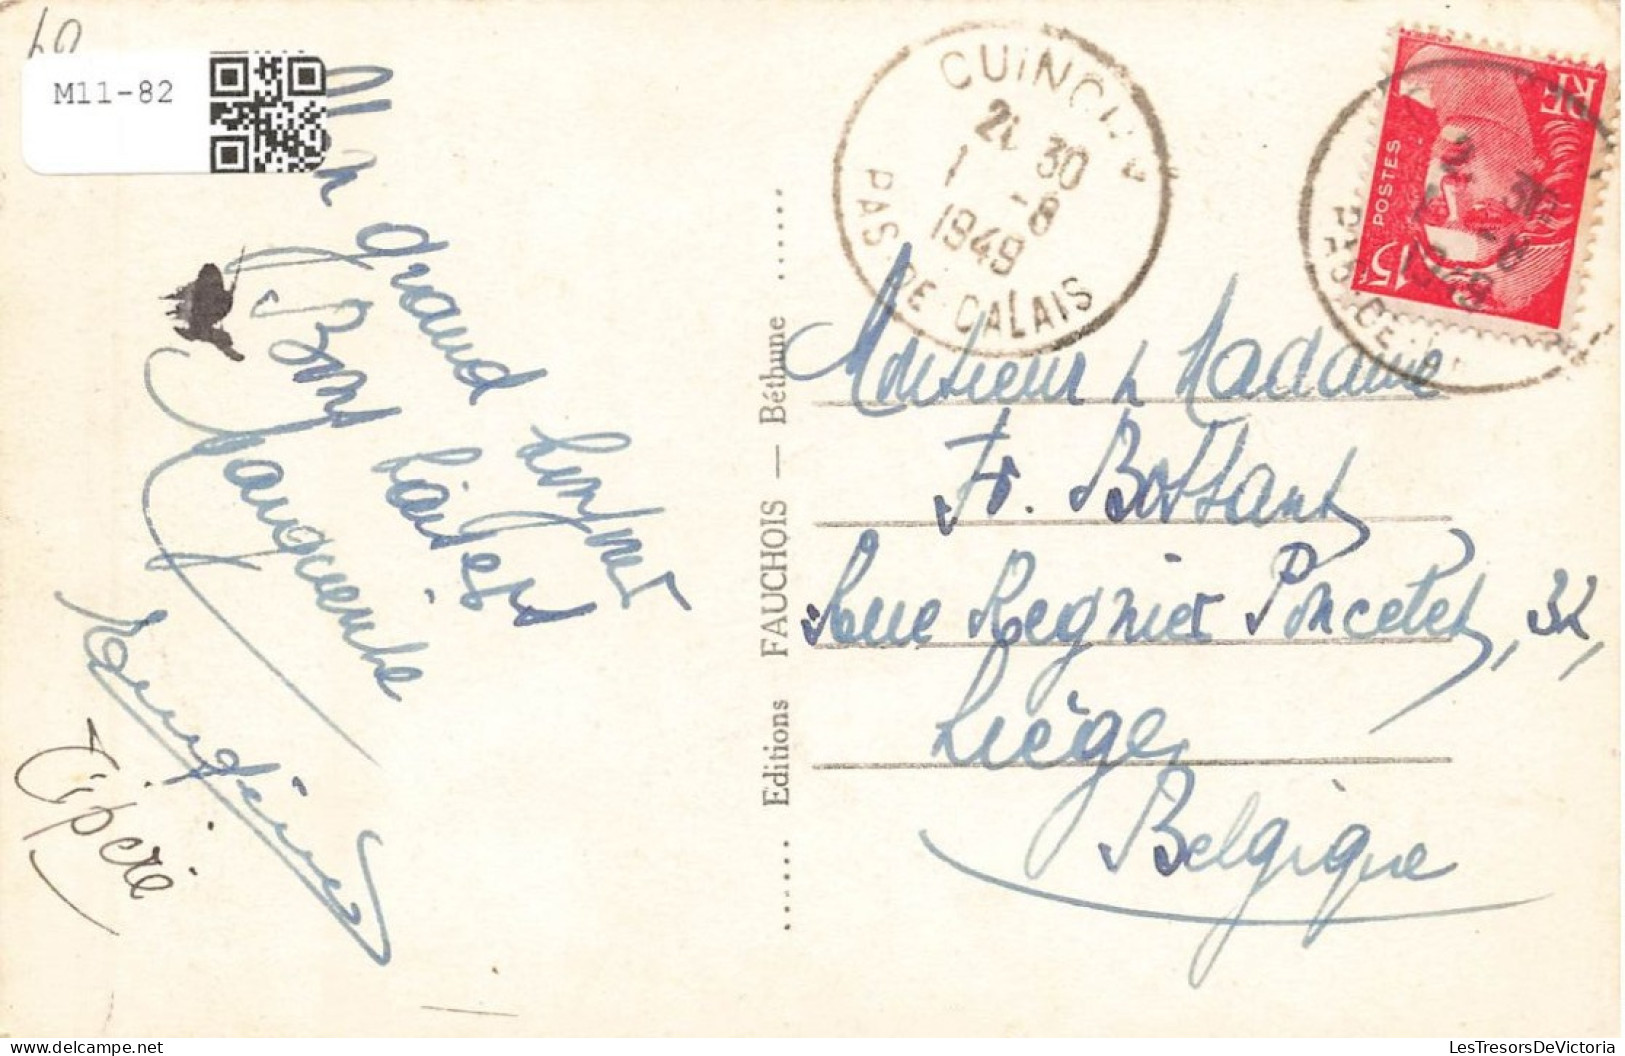 M11-82
grand
Bons baisers
Marguerite
CUINCHY
21 30
1 -8
1949
PAS-DE-CALAIS
RF
POSTES
15
1949
Editions FAUCHOIS — Béthune
Monsieur & Madame
Fr. Bottant
Rue Regnier Poncelet, 32,
Liège,
Belgique
LesTresorsDeVictoria